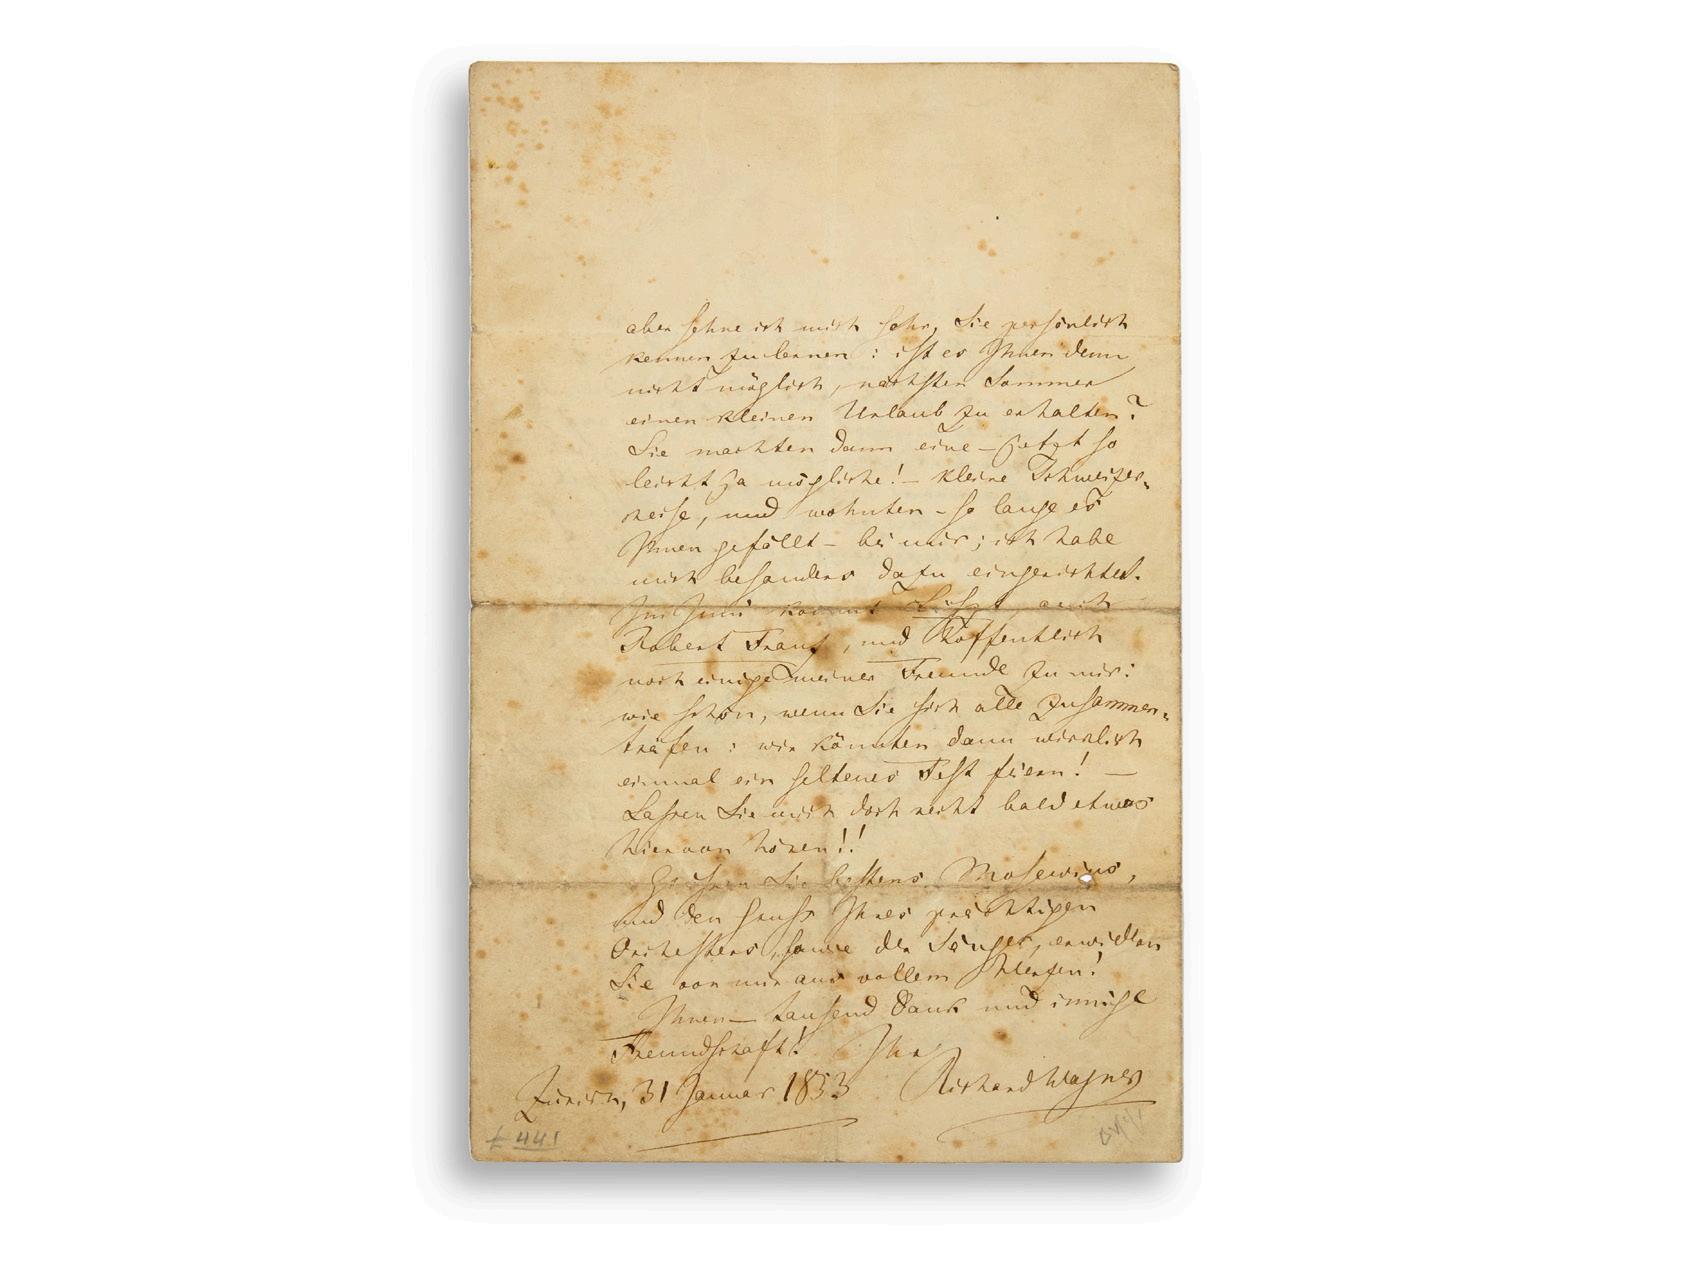 aber sehne ich mich sehr, Sie persönlich
kennen zu lernen: ist es Ihnen denn
nicht möglich, nächsten Sommer
einen kleinen Urlaub zu erhalten?
Sie machten dann eine – jetzt so
leicht ja mögliche! – kleine Schweizer-
reise, und wohnten – so lange es
Ihnen gefällt – bei mir; ich habe
mich besonders dazu eingerichtet.
Im Juni kommt Liszt, auch
Robert Franz, und hoffentlich
noch einige meiner Freunde zu mir:
wie schön, wenn Sie sich alle zusammen-
träfen: wir könnten dann wirklich
einmal ein seltenes Fest feiern! —
Lassen Sie mich doch recht bald etwas
hiervon hören!!
Grüssen Sie bestens Mosewius,
und den Gruss Ihres prächtigen
Orchesters, sowie der Sänger, erwidern
Sie von mir aus vollem Herzen!
Ihnen — tausend Dank und innige
Freundschaft! Ihr
Zürich, 31 Januar 1853 Richard Wagner
£ 441